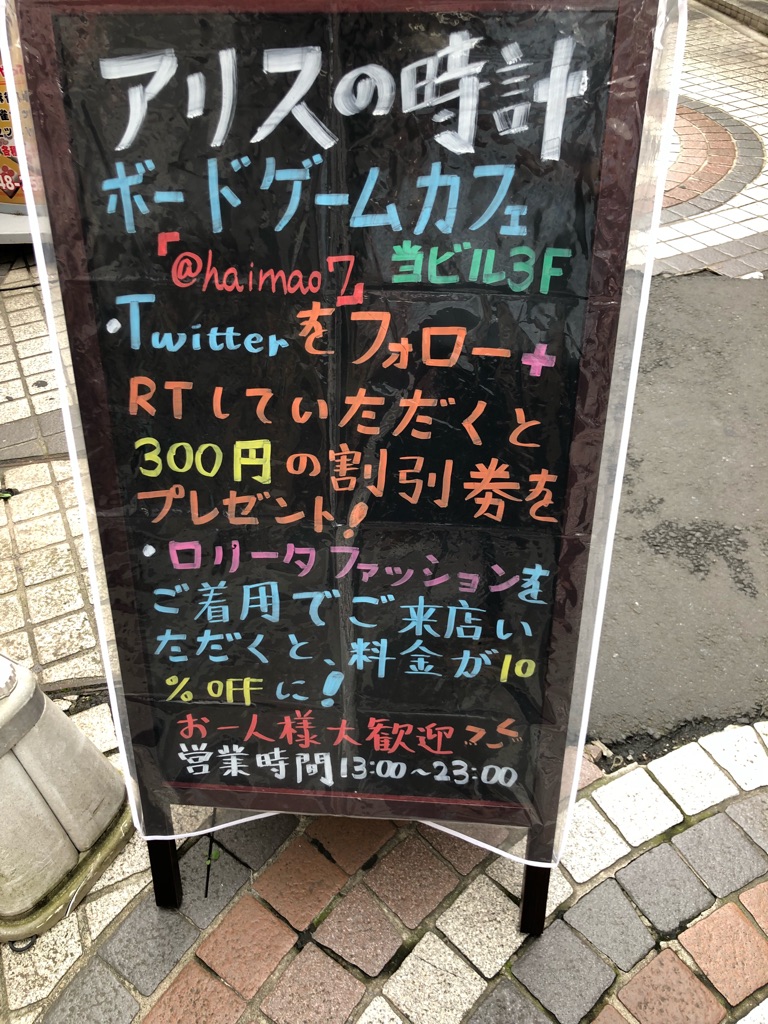 アリスの時計
ボードゲームカフェ
「@haimao7」 当ビル3F
・Twitterをフォロー+
RTしていただくと
300円の割引券を
プレゼント!
・ロリータファッションを
ご着用でご来店い
ただくと、料金が10
% OFFに!
お一人様大歓迎
営業時間13:00~23:00